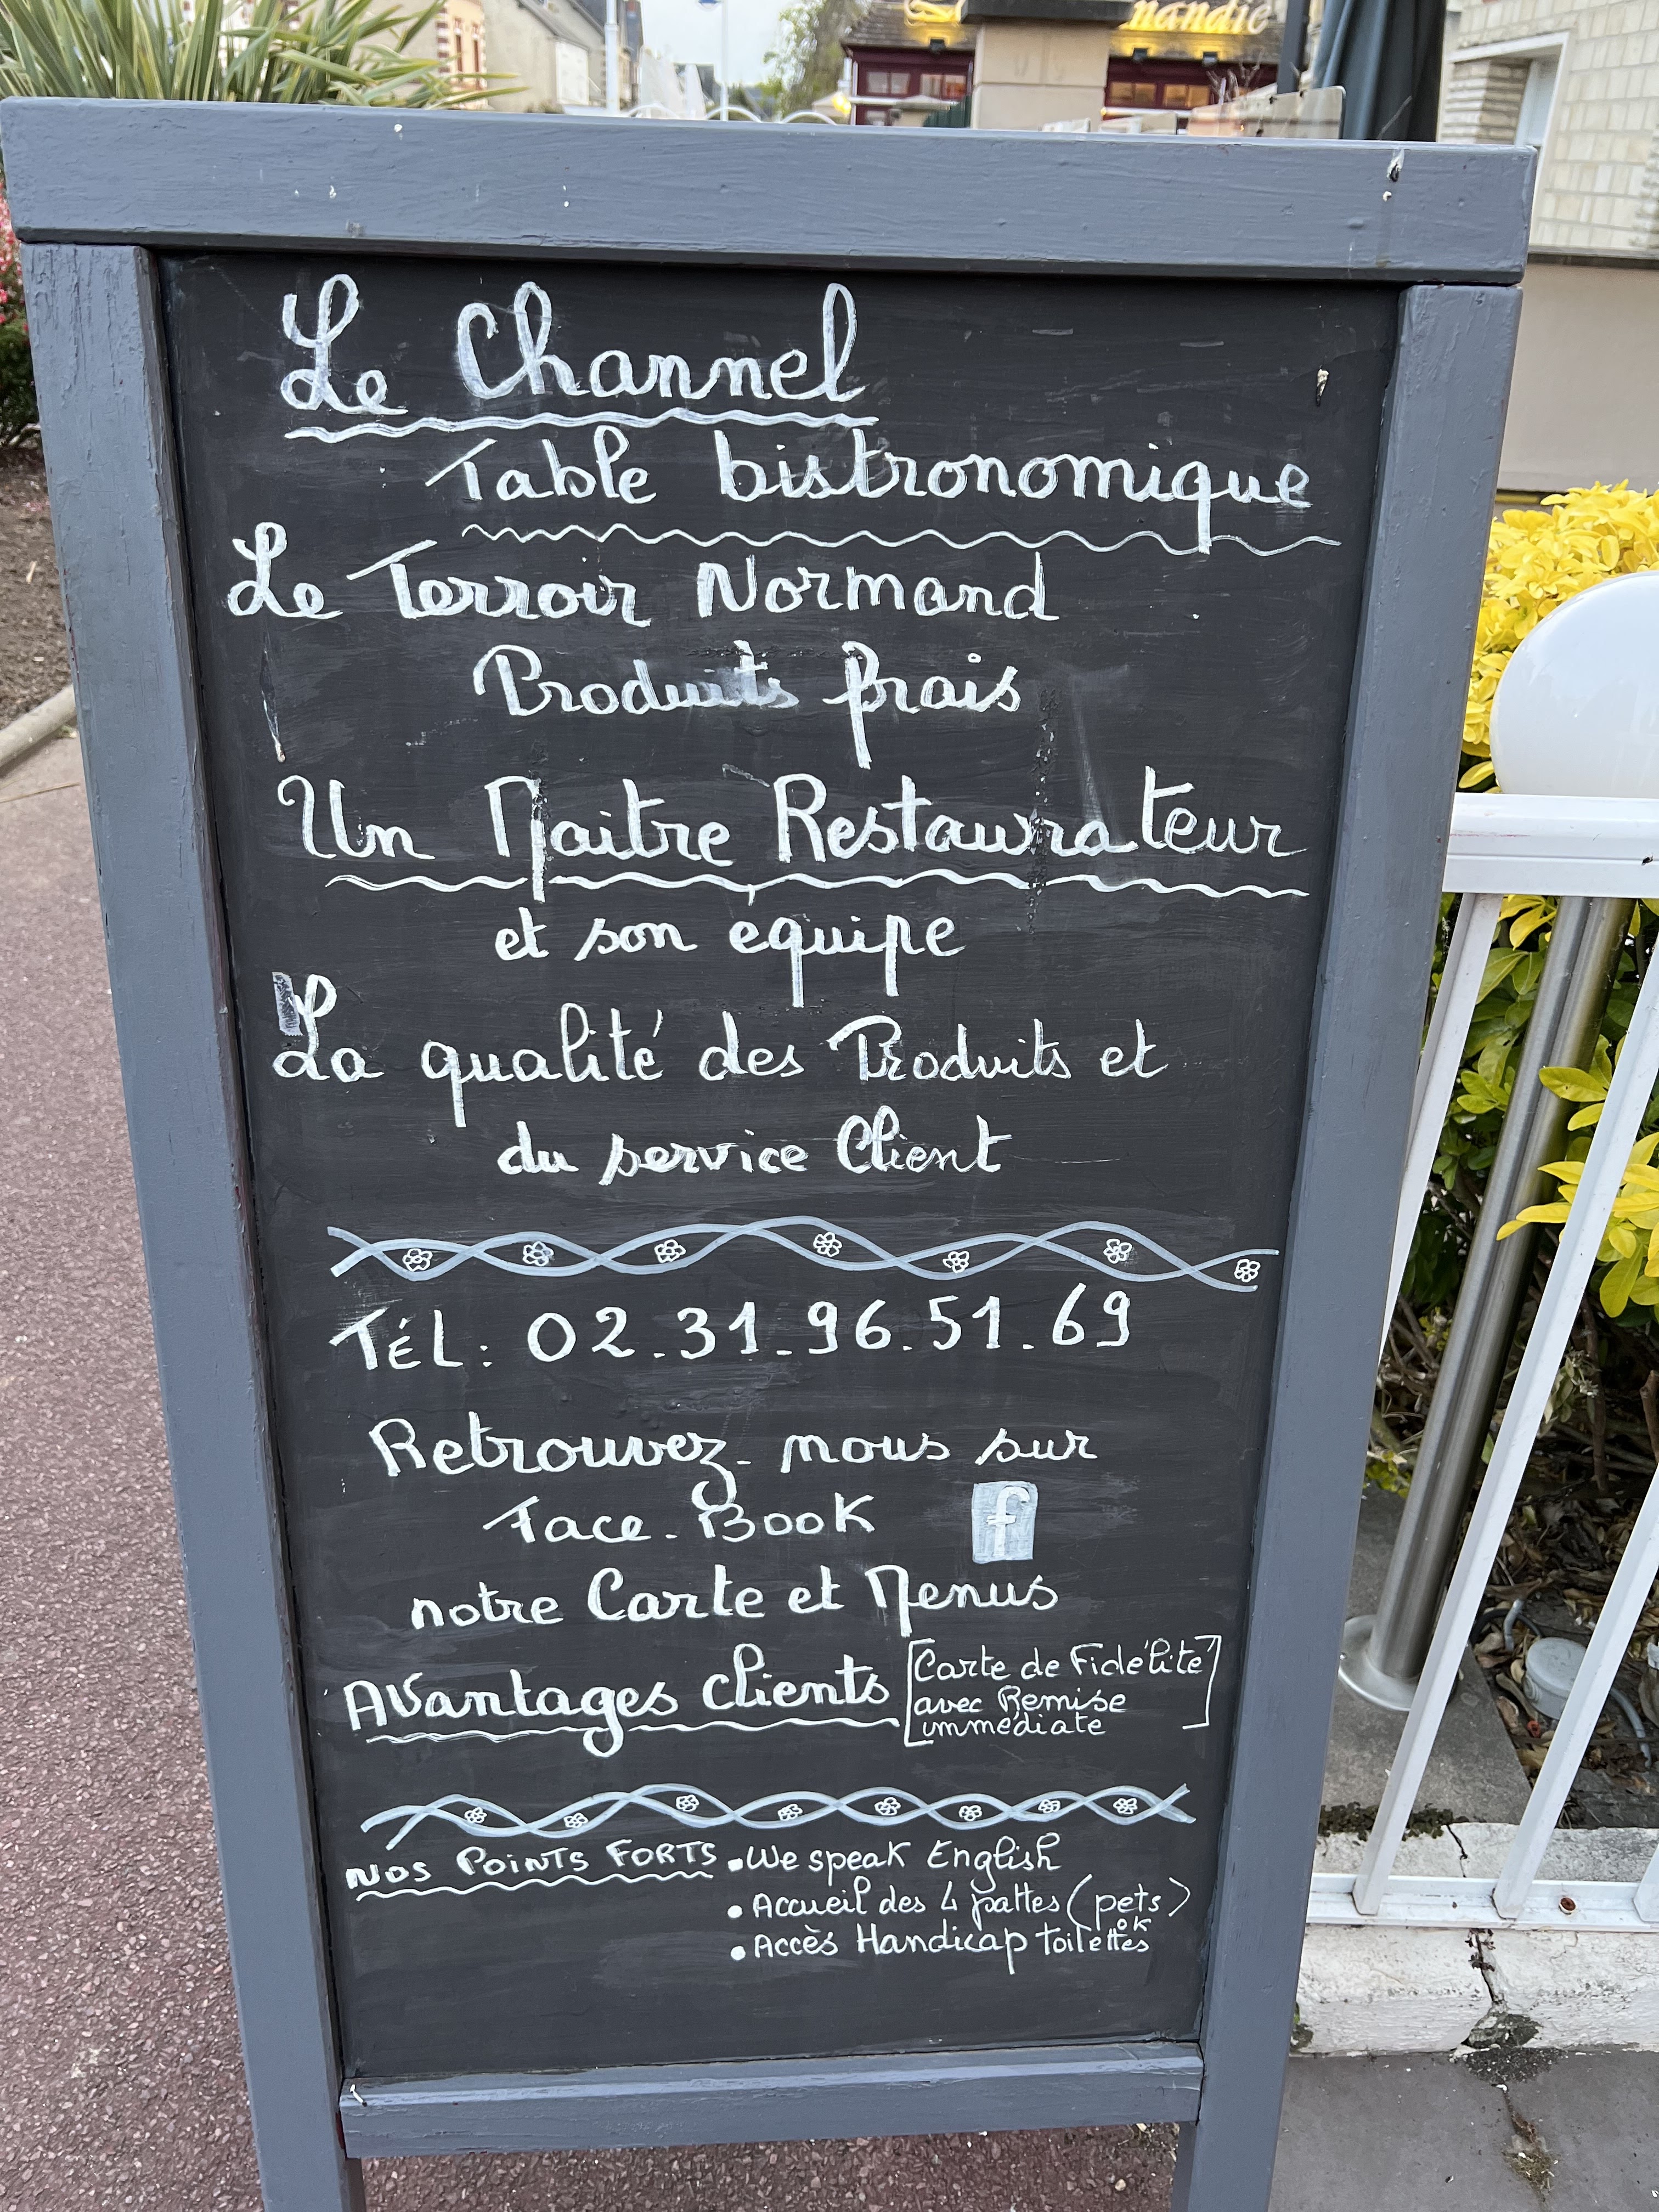 nandie
Le Channel
Table bistronomique
Le Terroir Normand
Produits frais
Un Maitre Restaurateur
et son équipe
La qualité des Produits et
du service Client
TÉL: 02.31.96.51.69
Retrouvez-nous sur
Face-Book f
notre Carte et Menus
Avantages clients [Carte de Fidélité
avec Remise
immédiate]
NOS POINTS FORTS •We speak English
• Accueil des 4 pattes (pets)
OK
• Accès Handicap toilettes